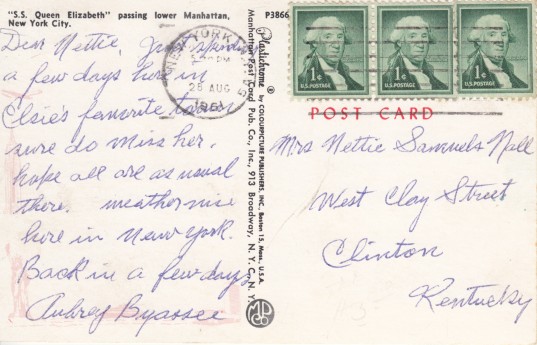 "S.S. Queen Elizabeth" passing lower Manhattan,
New York City.
P3866
Dear Nettie, Just spending
a few days here in
Elsie's favorite town
sure do miss her.
hope all are as usual
there. weather nice
here in New York.
Back in a few days
Aubrey Byassee
NEW YORK, N.Y.
PM
28 AUG
1961
Plastichrome ® by COLOURPICTURE PUBLISHERS, INC., Boston 15, Mass. U.S.A.
Manhattan Post Card Pub. Co., Inc., 913 Broadway, N. Y. C., N. Y.
MPC
CO
1¢
U.S. POSTAGE
1¢
U.S. POSTAGE
1¢
U.S. POSTAGE
POST CARD
Mrs Nettie Samuels Nall
West Clay Street
Clinton
Kentucky